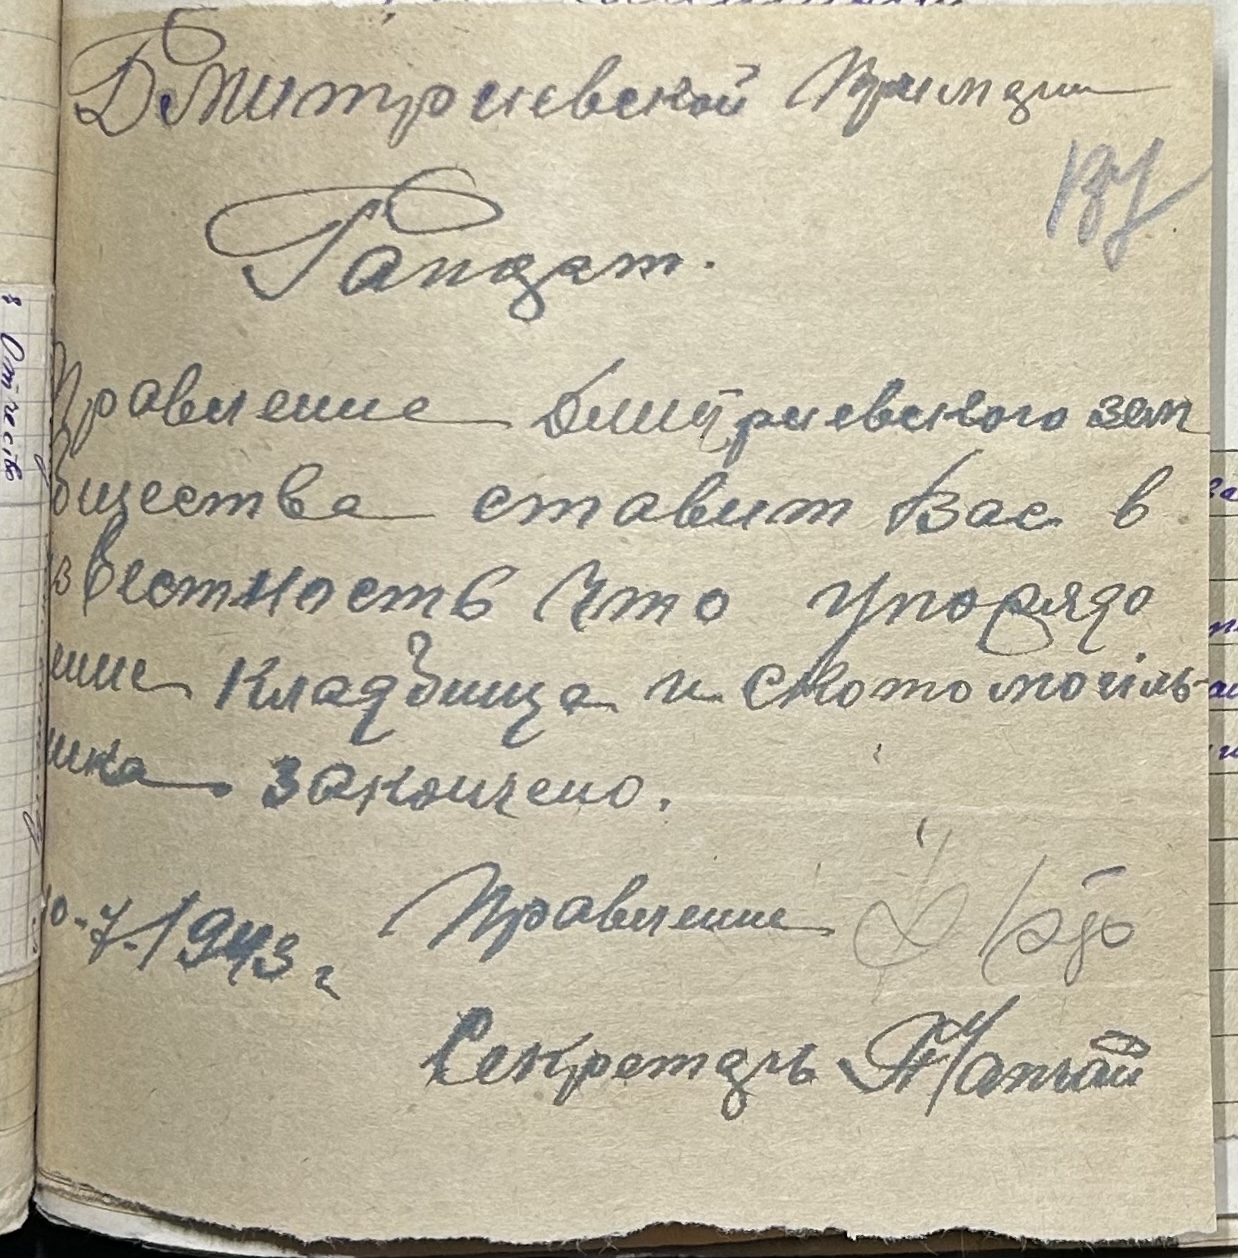 Дмитриевской Примэрии
Рапорт.
Правление Дмитриевского зем
общества ставит Вас в
известность что упорядо
ние кладбища и скотомогиль-
ника закончено.
10-7-1943 г Правление
Секретарь